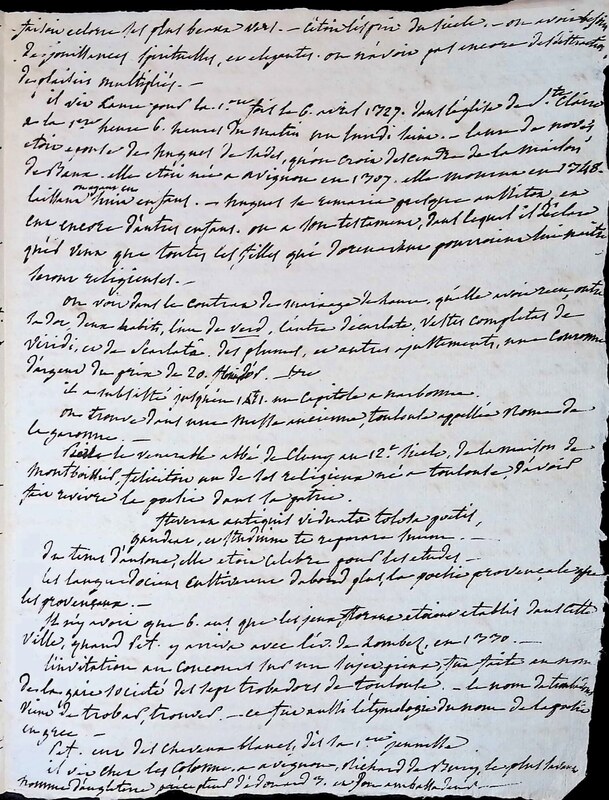 faisoit eclorre les plus beaux vers. — c'étoit l'esprit du siecle. — on avoit besoin
de jouissances spirituelles, et elegantes. on n'avoit pas encore de distractions
de plaisirs multipliés. —
il vit Laure pour la 1ere fois le 6. avril 1327. dans l'église de Ste Claire
a la 1ere heure 6. heures du matin un lundi saint. — Laure de noves
étoit epouse de hugues de sades, qu'on croit descendre de la maison
de Baux. elle étoit née a avignon en 1307. elle mourut en 1348.
laissant huit enfans. — hugues se remaria presque aussitôt, et
eut encore d'autres enfans. on a son testament, dans lequel il déclare
qu'il veut que toutes les filles qui dorenavant pourroient lui naitre
seront religieuses. —
on voit dans le contrat de mariage de Laure, qu'elle avoit reçu, outre
sa dot, deux habits, l'un de verd, l'autre d'écarlate, vestes completas de
viridi, et de scarlatâ. des plumes, et autres ajustements, une couronne
d'argent du prix de 20.
il a subsisté jusqu'en 1451. un Capitole a narbonne.
on trouve dans une messe ancienne, toulouse appellée Rome de
la garonne. —
le venerable abbé de Cluny au 12e siecle, de la maison de
montboissier felicitoit un de ses religieux né a toulouse, d'avoir
fait revivre la poesie dans sa patrie.
fleverat antiquis viduata tolosa poetis,
gaudeat, et studiis te reparare suum. —
du tems d'ausone, elle étoit celebre pour les etudes —
les languedociens cultiverent d'abord plus, la poesie provençale que
les provençaux. —
il n'y avoit que 6. ans, que les jeux floraux etoient etablis dans cette
ville, quand Pet. y arriva avec l'év. de Lombez, en 1330. —
l'invitation au Concours fut faite au nom
de la gaie societé des sept trobadors de toulouse. — le nom de troubadours
vient de trobar, trouver. — ce fut aussi l'etymologie du nome de la poesie
en grec —
Pet. eut des cheveux blancs, dès la 1ere jeunesse.
il vit chez les Colonne, a avignon, Richard de Bury, le plus savant
homme d'angleterre precepteur d'edouard 3. et son ambassadeur. —